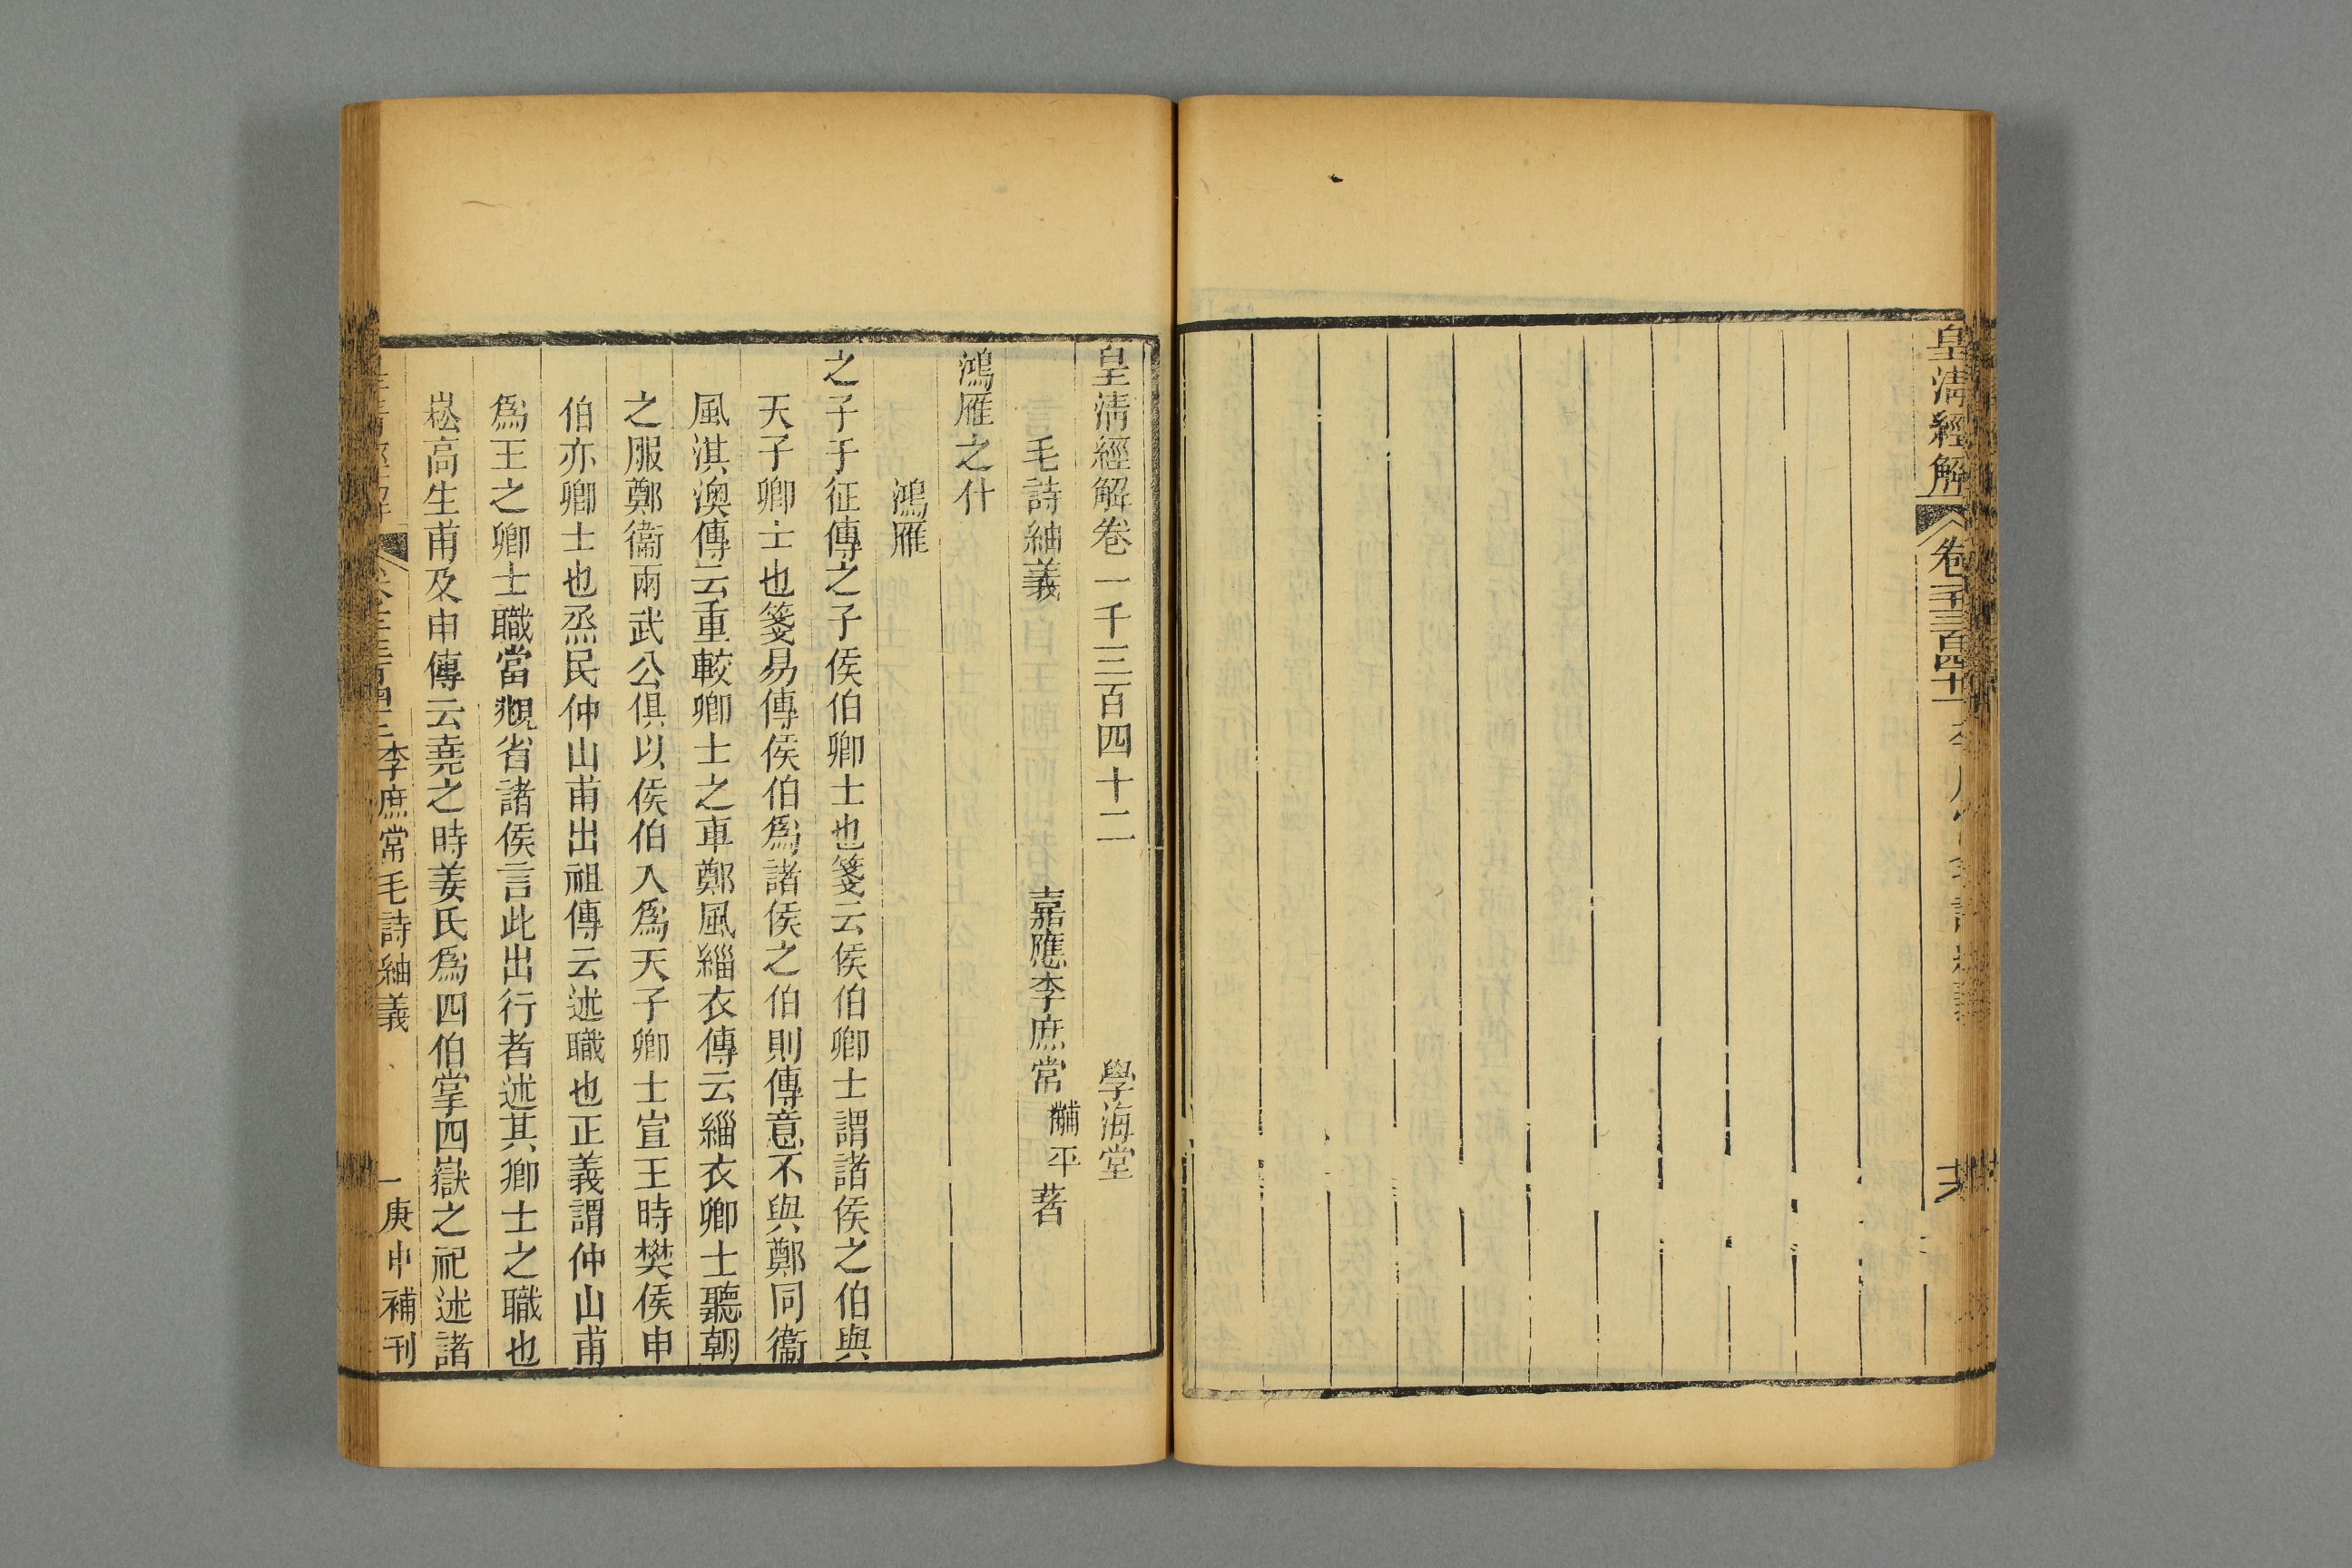 皇淸經解
卷一千三百四十一
皇淸經解卷一千三百四十二
學海堂
毛詩紬義
嘉應李庶常黼平著
鴻雁之什
鴻雁
之子于征傳之子侯伯卿士也箋云侯伯卿士謂諸侯之伯與
天子卿士也箋易傳侯伯爲諸侯之伯則傳意不與鄭同衞
風淇澳傳云重較卿士之車鄭風緇衣傳云緇衣卿士聽朝
之服鄭衞兩武公俱以侯伯入爲天子卿士宣王時樊侯申
伯亦卿士也烝民仲山甫出祖傳云述職也正義謂仲山甫
爲王之卿士職當覜省諸侯言此出行者述其卿士之職也
崧高生甫及申傳云堯之時姜氏爲四伯掌四嶽之祀述諸
李庶常毛詩紬義
一
庚申補刊